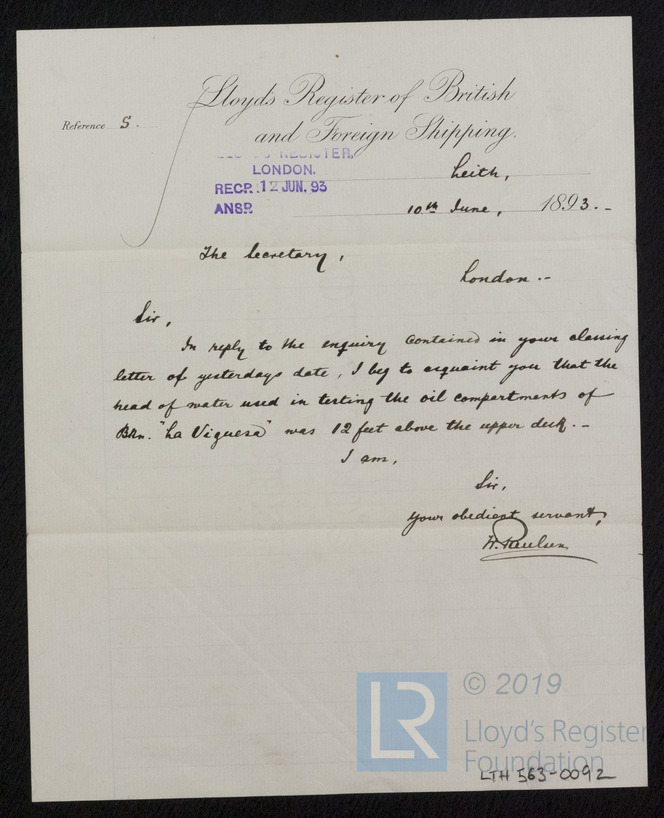 Lloyd's Register of British
and Foreign Shipping.
Reference S.
REGISTER,
LONDON.
RECD. 12 JUN. 93
ANSD.
Leith,
10th June, 1893.-
The Secretary,
London.-
Sir,
In reply to the enquiry contained in your classing
letter of yesterdays date, I beg to acquaint you that the
head of water used in testing the oil compartments of
Bkn. "La Viguesa" was 12 feet above the upper deck.-
I am,
Sir,
Your obedient servant,
H. Paulsen
LR © 2019
Lloyd's Register
Foundation
LTH 563-0092